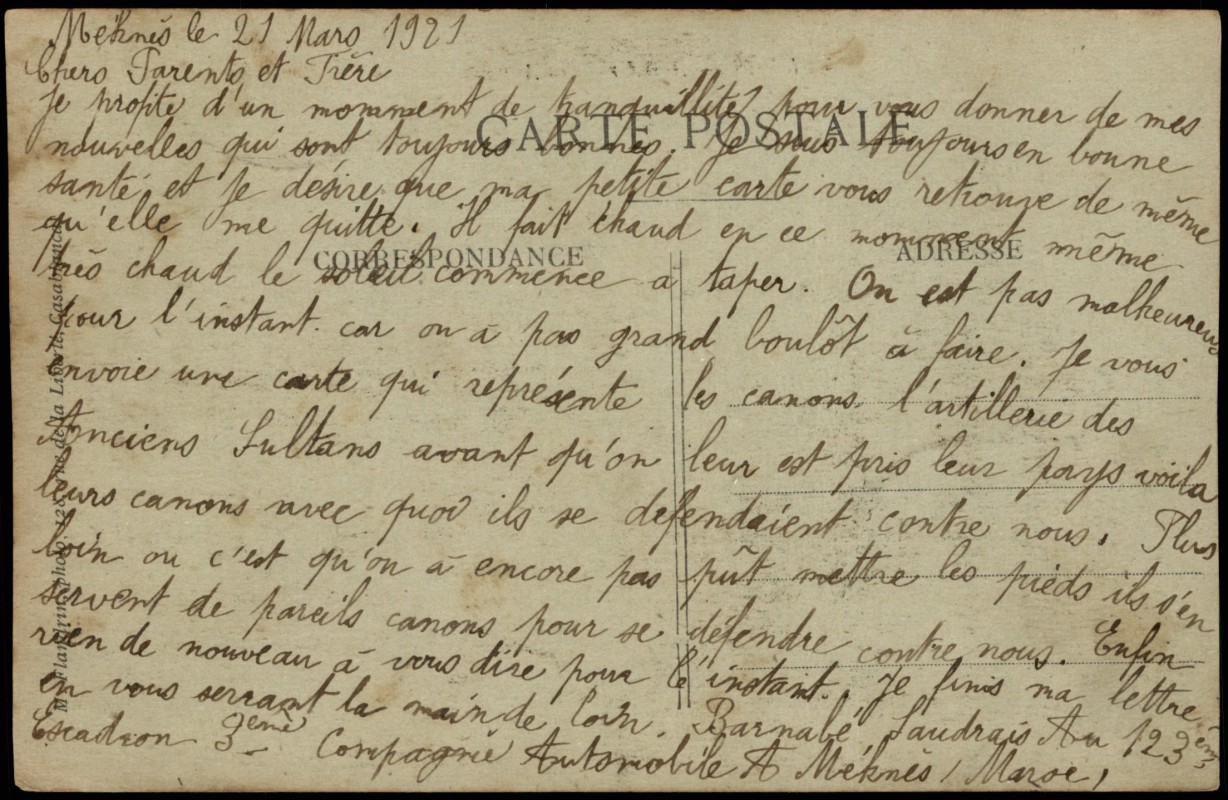 Méknès le 21 Mars 1921
Chers Parents et Frère
Je profite d'un momment de tranquillité pour vous donner de mes
nouvelles qui sont toujours bonnes. Je suis toujours en bonne
santé et Je désire que ma petite carte vous retrouve de même
qu'elle me quitte. Il fait chaud en ce momment même
très chaud le soleil commence a taper. On est pas malheureus
pour l'instant. car on à pas grand boulôt à faire. Je vous
envoie une carte qui représente les canons l'artillerie des
Anciens Sultans avant qu'on leur est pris leur pays voila
leurs canons avec quoi ils se défendaient contre nous. Plus
loin ou c'est qu'on à encore pas pût mettre les pieds ils s'en
servent de pareils canons pour se défendre contre nous. Enfin
rien de nouveau à vous dire pour l'instant. Je finis ma lettre
en vous serrant la main de loin. Barnabé Saudrais Au 123ème
Escadron 3ème Compagnie Automobile A Méknès (Maroc)
CARTE POSTALE
CORRESPONDANCE
ADRESSE
photo. 128, rue de la Liberté, Casablanca